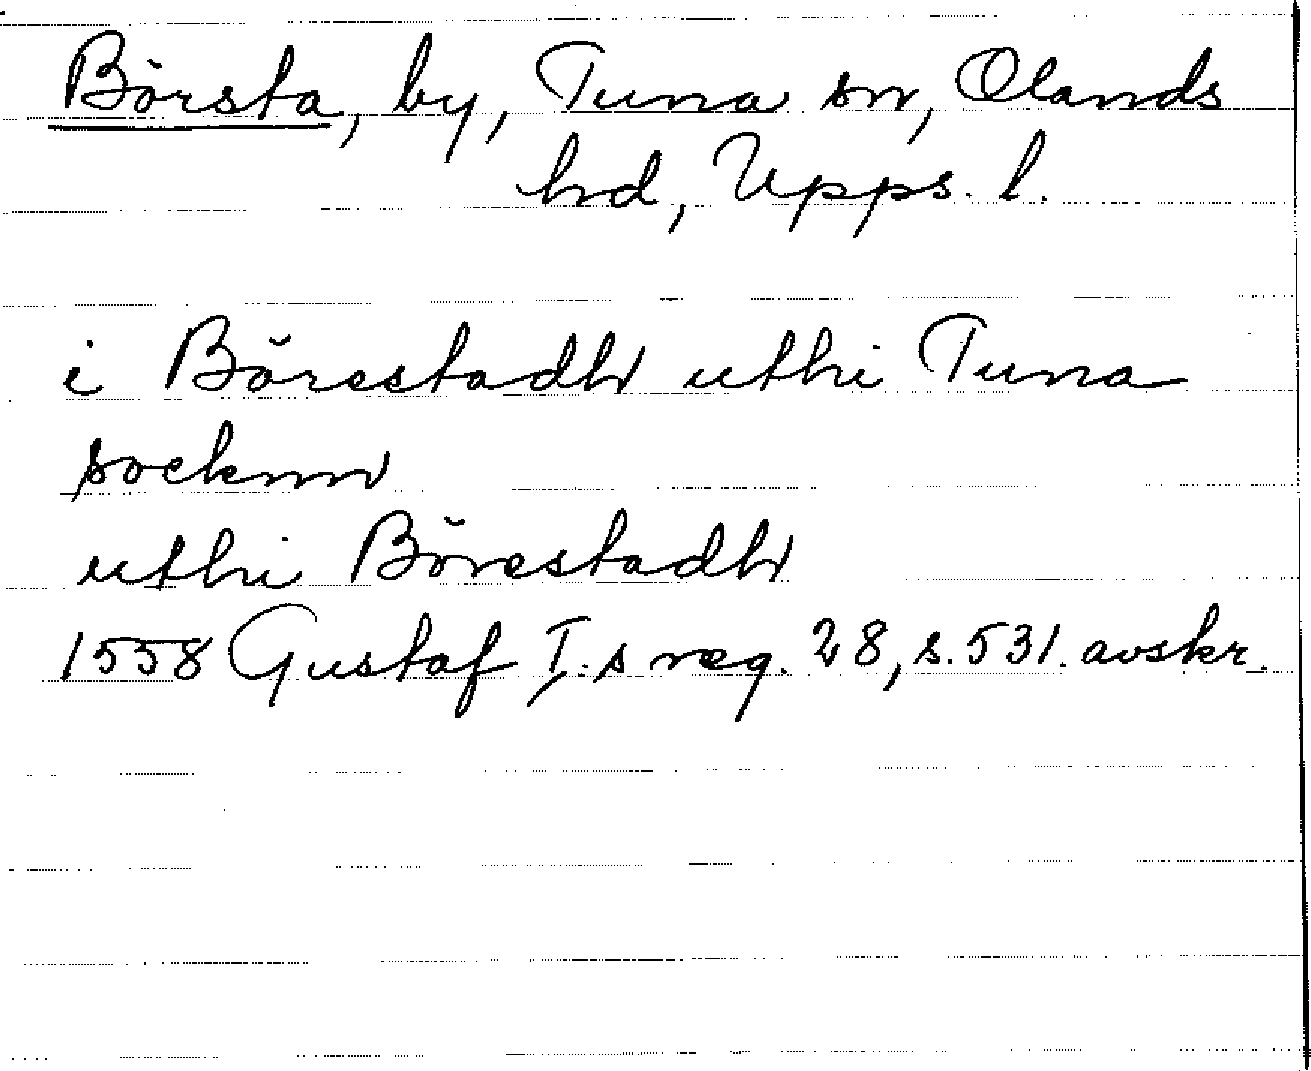 Börsta, by, Tuna sn, Olands
hd, Upps. l.
i Börestadh uthi Tuna
socknn
uthi Börestadh
1558 Gustaf I:s reg. 28, s. 531. avskr.